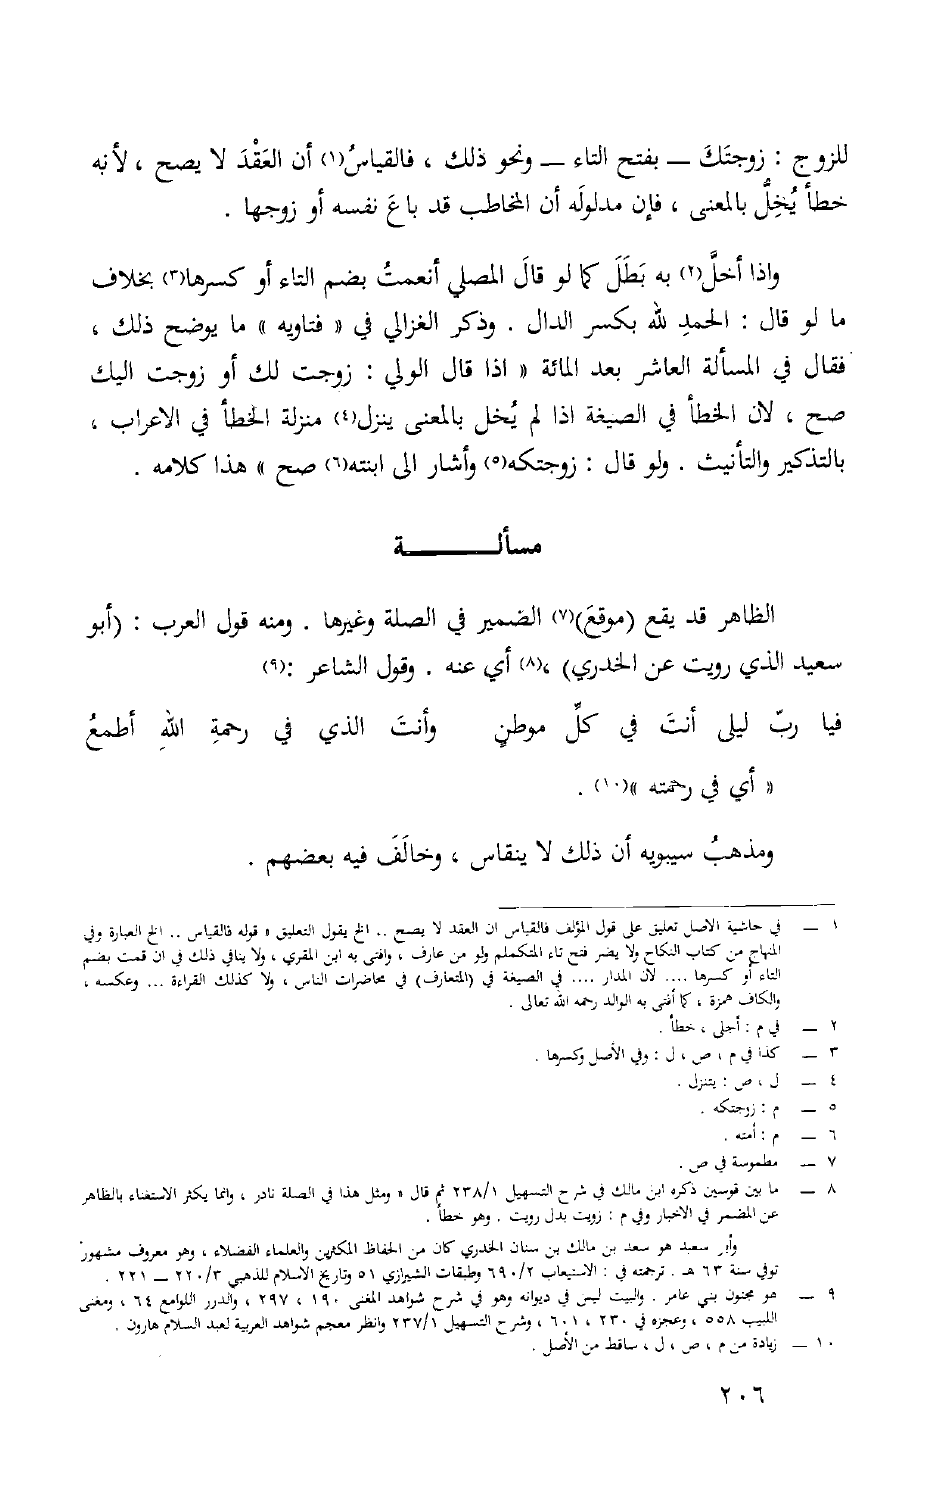 للزوج : زوجتَكَ ــ بفتح التاء ــ ونحو ذلك ، فالقياسُ(١) أن العَقْدَ لا يصح ، لأنه
خطأ يُخِلُّ بالمعنى ، فإن مدلولَه أن المخاطب قد باعَ نفسه أو زوجها .
واذا أخلَّ(٢) به بَطَلَ كما لو قالَ المصلي أنعمتُ بضم التاء أو كسرها(٣) بخلاف
ما لو قال : الحمدِ لله بكسر الدال . وذكر الغزالي في « فتاويه » ما يوضح ذلك ،
فقال في المسألة العاشر بعد المائة « اذا قال الولي : زوجت لك أو زوجت اليك
صح ، لان الخطأ في الصيغة اذا لم يُخل بالمعنى ينزل(٤) منزلة الخطأ في الاعراب ،
بالتذكير والتأنيث . ولو قال : زوجتكه(٥) وأشار الى ابنته(٦) صح » هذا كلامه .
مسألـــــــة
الظاهر قد يقع (موقعَ)(٧) الضمير في الصلة وغيرها . ومنه قول العرب : (أبو
سعيد الذي رويت عن الخدري) ،(٨) أي عنه . وقول الشاعر :(٩)
فيا ربّ ليلى أنتَ في كلِّ موطنٍ وأنتَ الذي في رحمةِ اللهِ أطمعُ
« أي في رحمته »(١٠) .
ومذهبُ سيبويه أن ذلك لا ينقاس ، وخالَفَ فيه بعضهم .
١ ــ في حاشية الاصل تعليق على قول المؤلف فالقياس ان العقد لا يصح .. الخ يقول التعليق « قوله فالقياس .. الخ العبارة وفي
المنهاج من كتاب النكاح ولا يضر فتح تاء المتكلم ولو من عارف ، وافتى به ابن المقري ، ولا ينافي ذلك في ان قمت بضم
التاء أو كسرها .... لان المدار .... في الصيغة في (المتعارف) في محاضرات الناس ، ولا كذلك القراءة ... وعكسه ،
والكاف همزة ، كما أفتى به الوالد رحمه الله تعالى .
٢ ــ في م : أجلى ، خطأ .
٣ ــ كذا في م ، ص ، ل : وفي الأصل وكسرها .
٤ ــ ل ، ص : يتنزل .
٥ ــ م : زوجتكه .
٦ ــ م : أمته .
٧ ــ مطموسة في ص .
٨ ــ ما بين قوسين ذكره ابن مالك في شرح التسهيل ٢٣٨/١ ثم قال « ومثل هذا في الصلة نادر ، وانما يكثر الاستغناء بالظاهر
عن المضمر في الاخبار وفي م : زويت بدل رويت . وهو خطأ .
وأبو سعيد هو سعد بن مالك بن سنان الخدري كان من الحفاظ المكثرين والعلماء الفضلاء ، وهو معروف مشهور
توفي سنة ٦٣ هـ . ترجمته في : الاستيعاب ٦٩٠/٢ وطبقات الشيرازي ٥١ وتاريخ الاسلام للذهبي ٢٢٠/٣ ــ ٢٢١ .
٩ ــ هو مجنون بني عامر . والبيت ليس في ديوانه وهو في شرح شواهد المغنى ١٩٠ ، ٢٩٧ ، والدرر اللوامع ٦٤ ، ومغنى
اللبيب ٥٥٨ ، وعجزه في ٢٣٠ ، ٦٠١ ، وشرح التسهيل ٢٣٧/١ وانظر معجم شواهد العربية لعبد السلام هارون .
١٠ ــ زيادة من م ، ص ، ل ، ساقط من الأصل .
٢٠٦